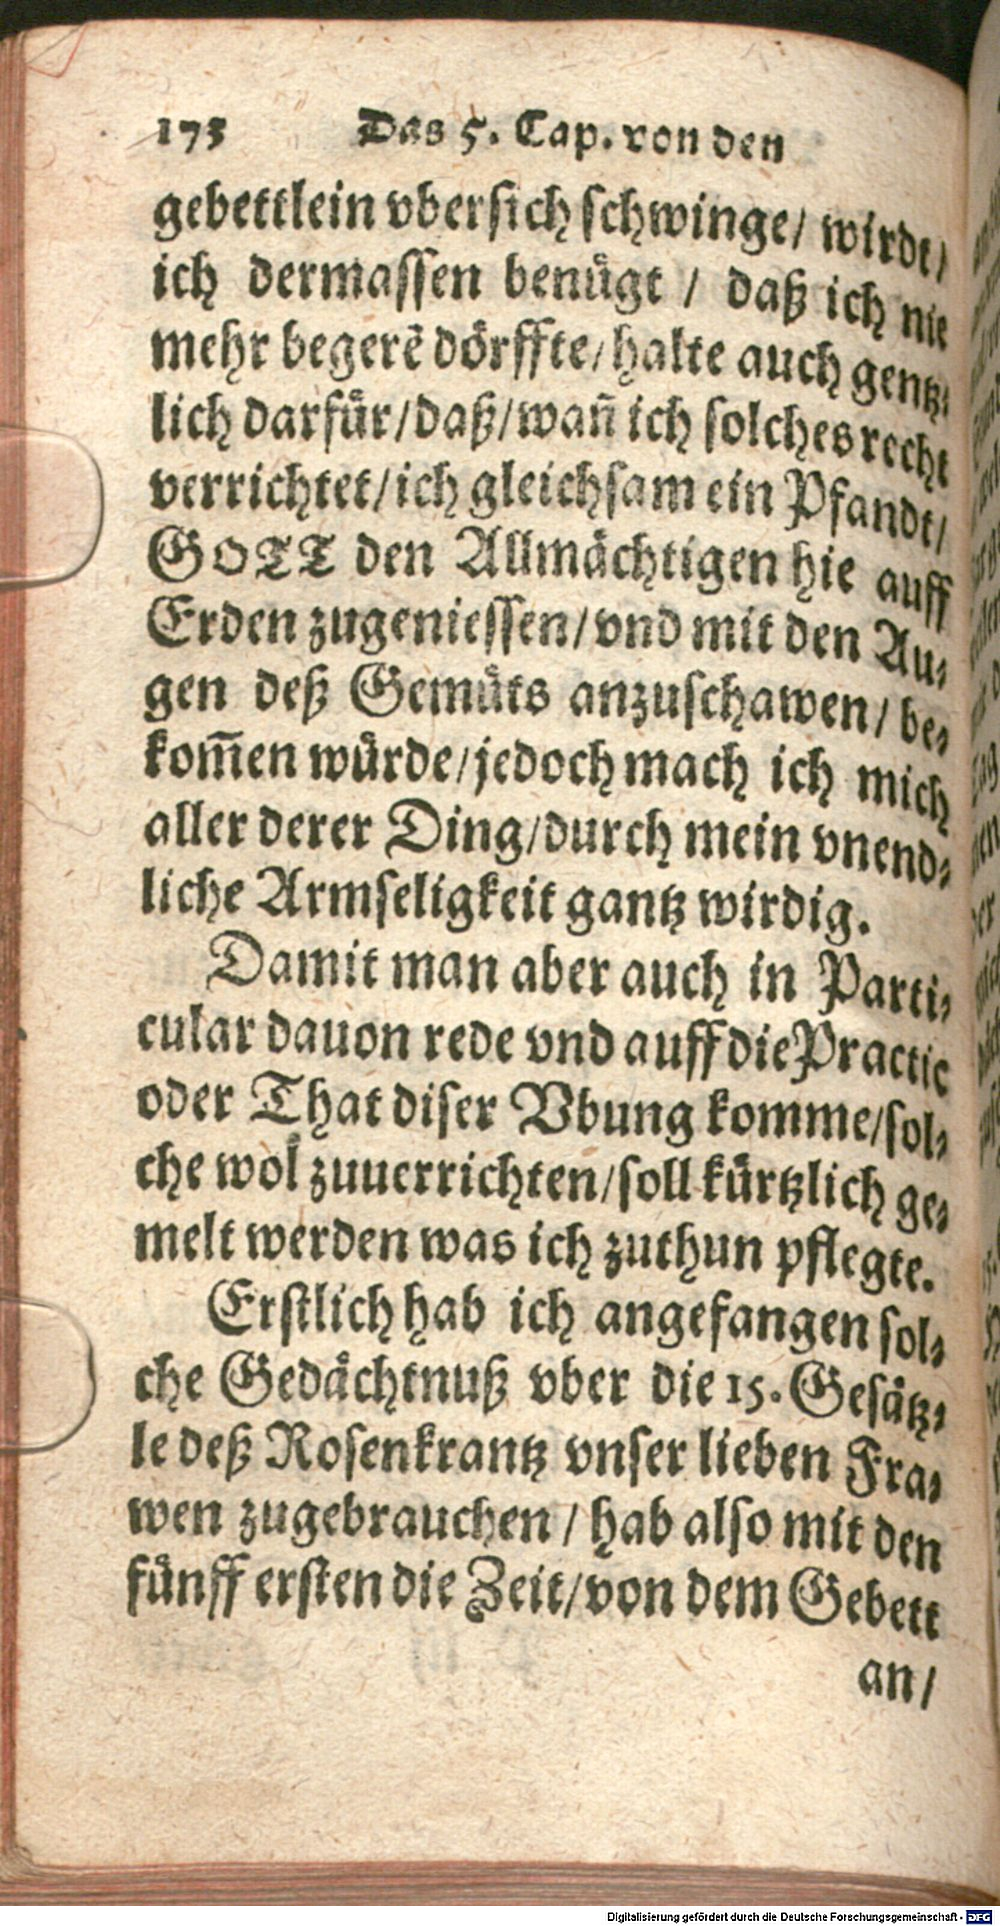 173 Das 5. Cap. von den
gebettlein vbersich schwinge/ wirdt/
ich dermassen benuͤgt / daß ich nie
mehr begerẽ doͤrffte/ halte auch gentz⸗
lich darfuͤr/ daß/ wañ ich solches recht
verrichtet/ ich gleichsam ein Pfandt/
GOTT den Allmaͤchtigen hie auff
Erden zugeniessen/ vnd mit den Au⸗
gen deß Gemuͤts anzuschawen/ be⸗
kom̃en wuͤrde/ jedoch mach ich mich
aller derer Ding/ durch mein vnend⸗
liche Armseligkeit gantz wirdig.
Damit man aber auch in Parti⸗
cular dauon rede vnd auff die Practic
oder That diser Vbung komme/ sol⸗
che wol zuuerrichten/ soll kuͤrtzlich ge⸗
melt werden was ich zuthun pflegte.
Erstlich hab ich angefangen sol⸗
che Gedaͤchtnuß vber die 15. Gesaͤtz⸗
le deß Rosenkrantz vnser lieben Fra⸗
wen zugebrauchen / hab also mit den
fuͤnff ersten die Zeit/ von dem Gebett
an/
Digitalisierung gefördert durch die Deutsche Forschungsgemeinschaft - DFG